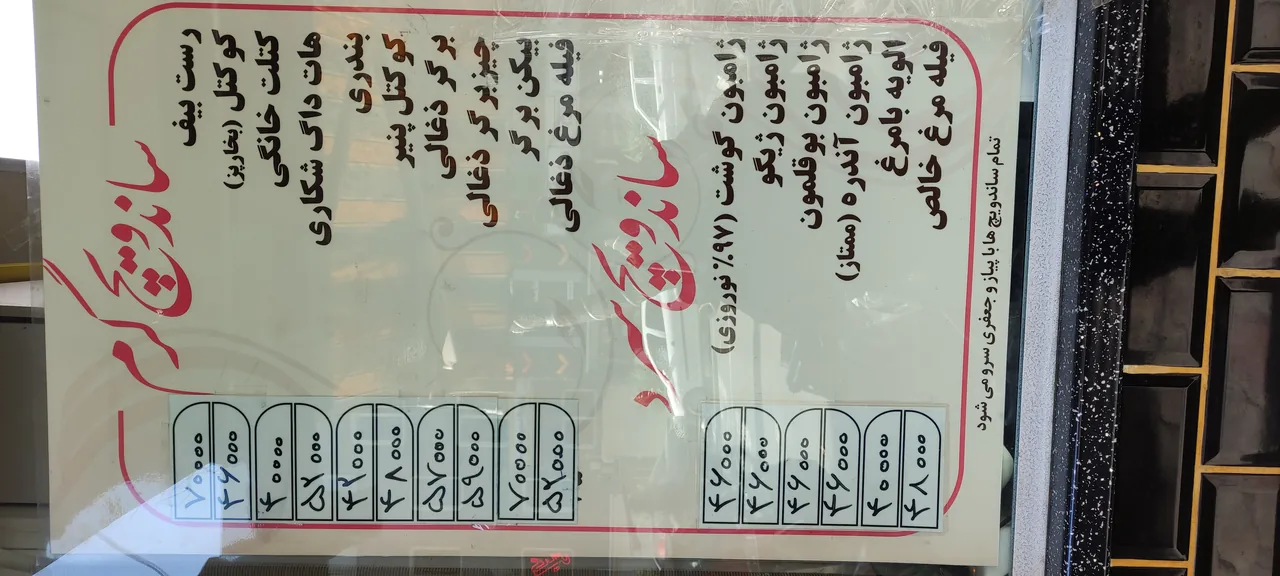 ساندویچ گرم
رست بیف ۷۰۰۰۰
کوکتل (بخارپز) ۴۶۰۰۰
کتلت خانگی ۴۰۰۰۰
هات داگ شکاری ۵۲۰۰۰
بندری ۴۲۰۰۰
کوکتل پنیر ۴۸۰۰۰
برگر ذغالی ۵۷۰۰۰
چیزبرگر ذغالی ۵۹۰۰۰
بیکن برگر ۷۰۰۰۰
فیله مرغ ذغالی ۵۲۰۰۰
ساندویچ سرد
ژامبون گوشت (۹۷٪ نوروزی) ۴۶۰۰۰
ژامبون ژیگو ۴۶۰۰۰
ژامبون بوقلمون ۴۶۰۰۰
ژامبون آندره (ممتاز) ۴۶۰۰۰
الویه بامرغ ۴۰۰۰۰
فیله مرغ خالص ۴۸۰۰۰
تمام ساندویچ ها با پیاز و جعفری سرو می شود